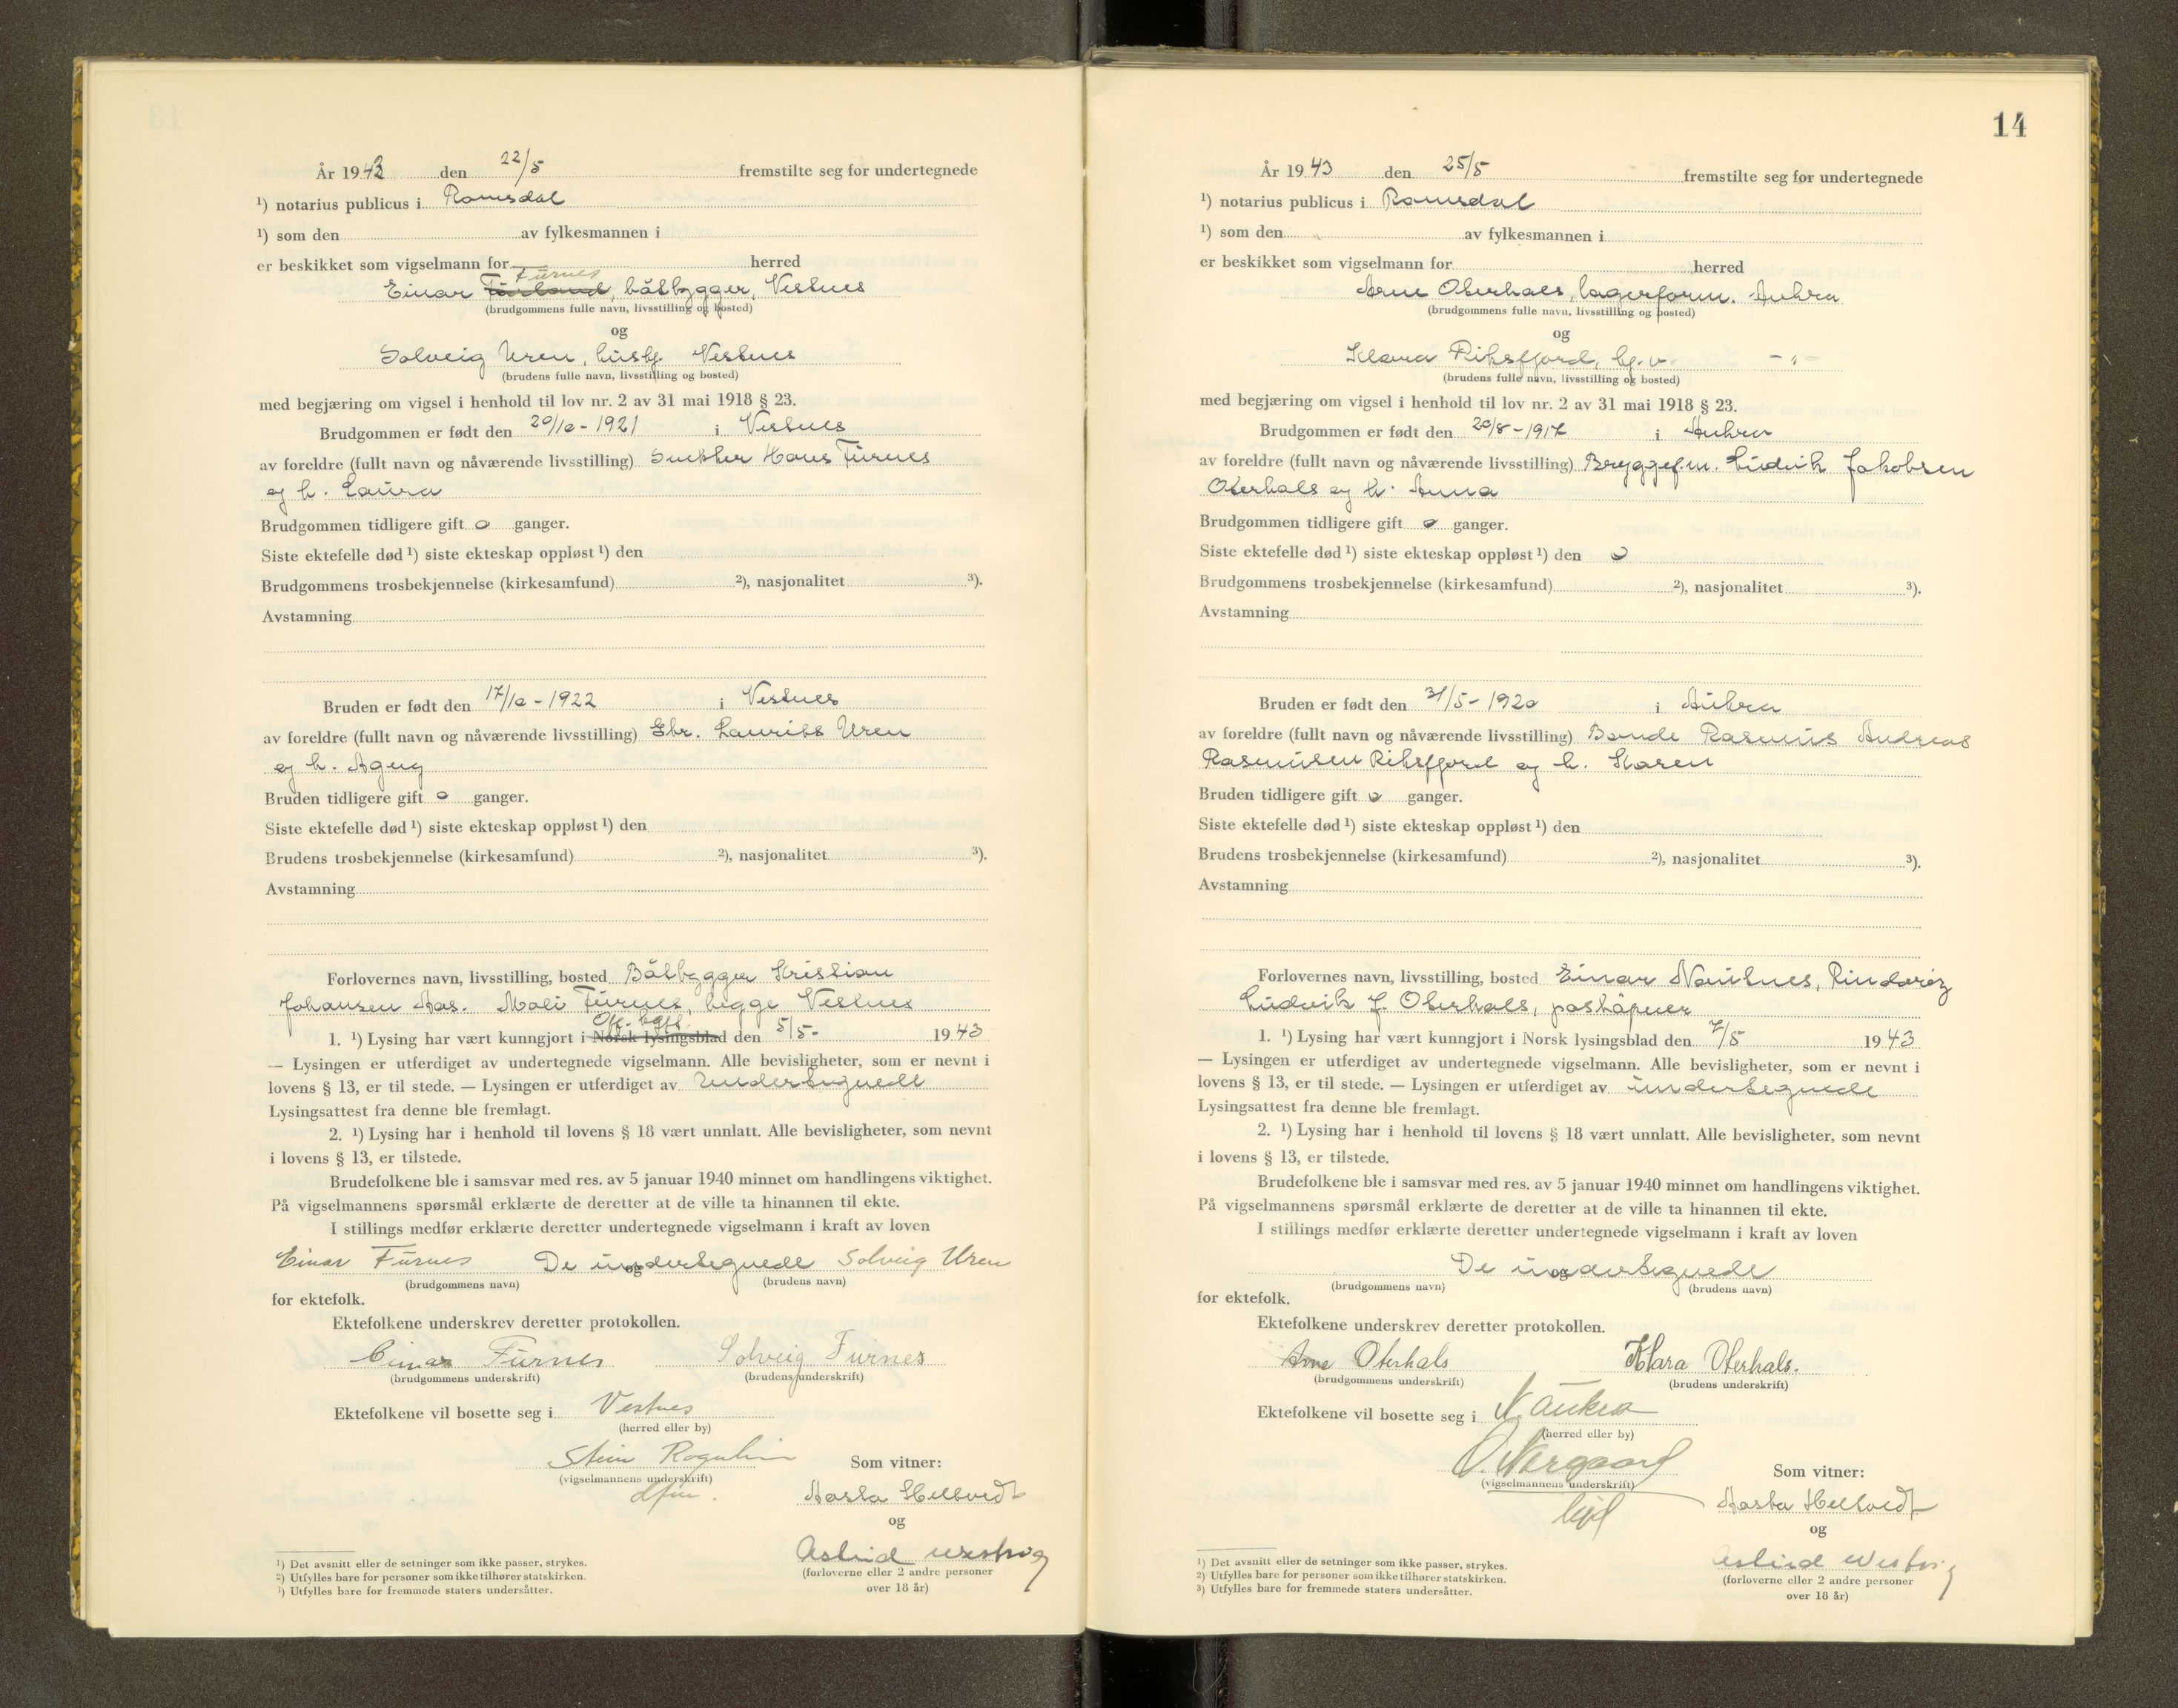 År 1943 den 22/5 fremstilte seg for undertegnede
¹) notarius publicus i Romsdal
¹) som den av fylkesmannen i
er beskikket som vigselmann for herred
Furnes
Einar Furland, båtbygger, Vestnes
(brudgommens fulle navn, livsstilling og bosted)
og
Solveig Uren, husbg. Vestnes
(brudens fulle navn, livsstilling og bosted)
med begjæring om vigsel i henhold til lov nr. 2 av 31 mai 1918 § 23.
Brudgommen er født den 20/10-1921 i Vestnes
av foreldre (fullt navn og nåværende livsstilling) Snekker Hans Furnes
og h. Laura
Brudgommen tidligere gift 0 ganger.
Siste ektefelle død ¹) siste ekteskap oppløst ¹) den
Brudgommens trosbekjennelse (kirkesamfund) ²), nasjonalitet ³).
Avstamning
Bruden er født den 17/10-1922 i Vestnes
av foreldre (fullt navn og nåværende livsstilling) Gbr. Laurits Uren
og h. Agny
Bruden tidligere gift 0 ganger.
Siste ektefelle død ¹) siste ekteskap oppløst ¹) den
Brudens trosbekjennelse (kirkesamfund) ²), nasjonalitet ³).
Avstamning
Forlovernes navn, livsstilling, bosted Båtbygger Kristian
Johansen Aas. Moli Furnes, begge Vestnes
Off.
1. ¹) Lysing har vært kunngjort i Norsk lysingsblad den 5/5- 1943
— Lysingen er utferdiget av undertegnede vigselmann. Alle bevisligheter, som er nevnt i
lovens § 13, er til stede. — Lysingen er utferdiget av undertegnede
Lysingsattest fra denne ble fremlagt.
2. ¹) Lysing har i henhold til lovens § 18 vært unnlatt. Alle bevisligheter, som nevnt
i lovens § 13, er tilstede.
Brudefolkene ble i samsvar med res. av 5 januar 1940 minnet om handlingens viktighet.
På vigselmannens spørsmål erklærte de deretter at de ville ta hinannen til ekte.
I stillings medfør erklærte deretter undertegnede vigselmann i kraft av loven
Einar Furnes De undertegnede Solveig Uren
og
(brudgommens navn) (brudens navn)
for ektefolk.
Ektefolkene underskrev deretter protokollen.
Einar Furnes Solveig Furnes
(brudgommens underskrift) (brudens underskrift)
Ektefolkene vil bosette seg i Vestnes
(herred eller by)
Stein Rognlien
(vigselmannens underskrift)
dfm.
Som vitner:
Aasta Heltvedt
og
Astrid Westvig
(forloverne eller 2 andre personer
over 18 år)
¹) Det avsnitt eller de setninger som ikke passer, strykes.
²) Utfylles bare for personer som ikke tilhører statskirken.
³) Utfylles bare for fremmede staters undersåtter.
14
År 1943 den 25/5 fremstilte seg for undertegnede
¹) notarius publicus i Romsdal
¹) som den av fylkesmannen i
er beskikket som vigselmann for herred
Arne Oterhals, lagerform. Aukra
(brudgommens fulle navn, livsstilling og bosted)
og
Klara Riksfjord, hj.v. -"-
(brudens fulle navn, livsstilling og bosted)
med begjæring om vigsel i henhold til lov nr. 2 av 31 mai 1918 § 23.
Brudgommen er født den 20/8-1917 i Aukra
av foreldre (fullt navn og nåværende livsstilling) Bryggef.m. Ludvik Jakobsen
Oterhals og h. Anna
Brudgommen tidligere gift 0 ganger.
Siste ektefelle død ¹) siste ekteskap oppløst ¹) den 0
Brudgommens trosbekjennelse (kirkesamfund) ²), nasjonalitet ³).
Avstamning
Bruden er født den 31/5-1920 i Aukra
av foreldre (fullt navn og nåværende livsstilling) Bonde Rasmus Andreas
Rasmussen Riksfjord og h. Karen
Bruden tidligere gift 0 ganger.
Siste ektefelle død ¹) siste ekteskap oppløst ¹) den
Brudens trosbekjennelse (kirkesamfund) ²), nasjonalitet ³).
Avstamning
Forlovernes navn, livsstilling, bosted Einar Nautnes, Rindarøy
Ludvik J. Oterhals, poståpner
1. ¹) Lysing har vært kunngjort i Norsk lysingsblad den 7/5 1943
— Lysingen er utferdiget av undertegnede vigselmann. Alle bevisligheter, som er nevnt i
lovens § 13, er til stede. — Lysingen er utferdiget av undertegnede
Lysingsattest fra denne ble fremlagt.
2. ¹) Lysing har i henhold til lovens § 18 vært unnlatt. Alle bevisligheter, som nevnt
i lovens § 13, er tilstede.
Brudefolkene ble i samsvar med res. av 5 januar 1940 minnet om handlingens viktighet.
På vigselmannens spørsmål erklærte de deretter at de ville ta hinannen til ekte.
I stillings medfør erklærte deretter undertegnede vigselmann i kraft av loven
De undertegnede
og
(brudgommens navn) (brudens navn)
for ektefolk.
Ektefolkene underskrev deretter protokollen.
Arne Oterhals Klara Oterhals.
(brudgommens underskrift) (brudens underskrift)
Ektefolkene vil bosette seg i N. Aukra
(herred eller by)
O. Nergaard
(vigselmannens underskrift)
Som vitner:
Aasta Heltvedt
og
Astrid Westvig
(forloverne eller 2 andre personer
over 18 år)
¹) Det avsnitt eller de setninger som ikke passer, strykes.
²) Utfylles bare for personer som ikke tilhører statskirken.
³) Utfylles bare for fremmede staters undersåtter.